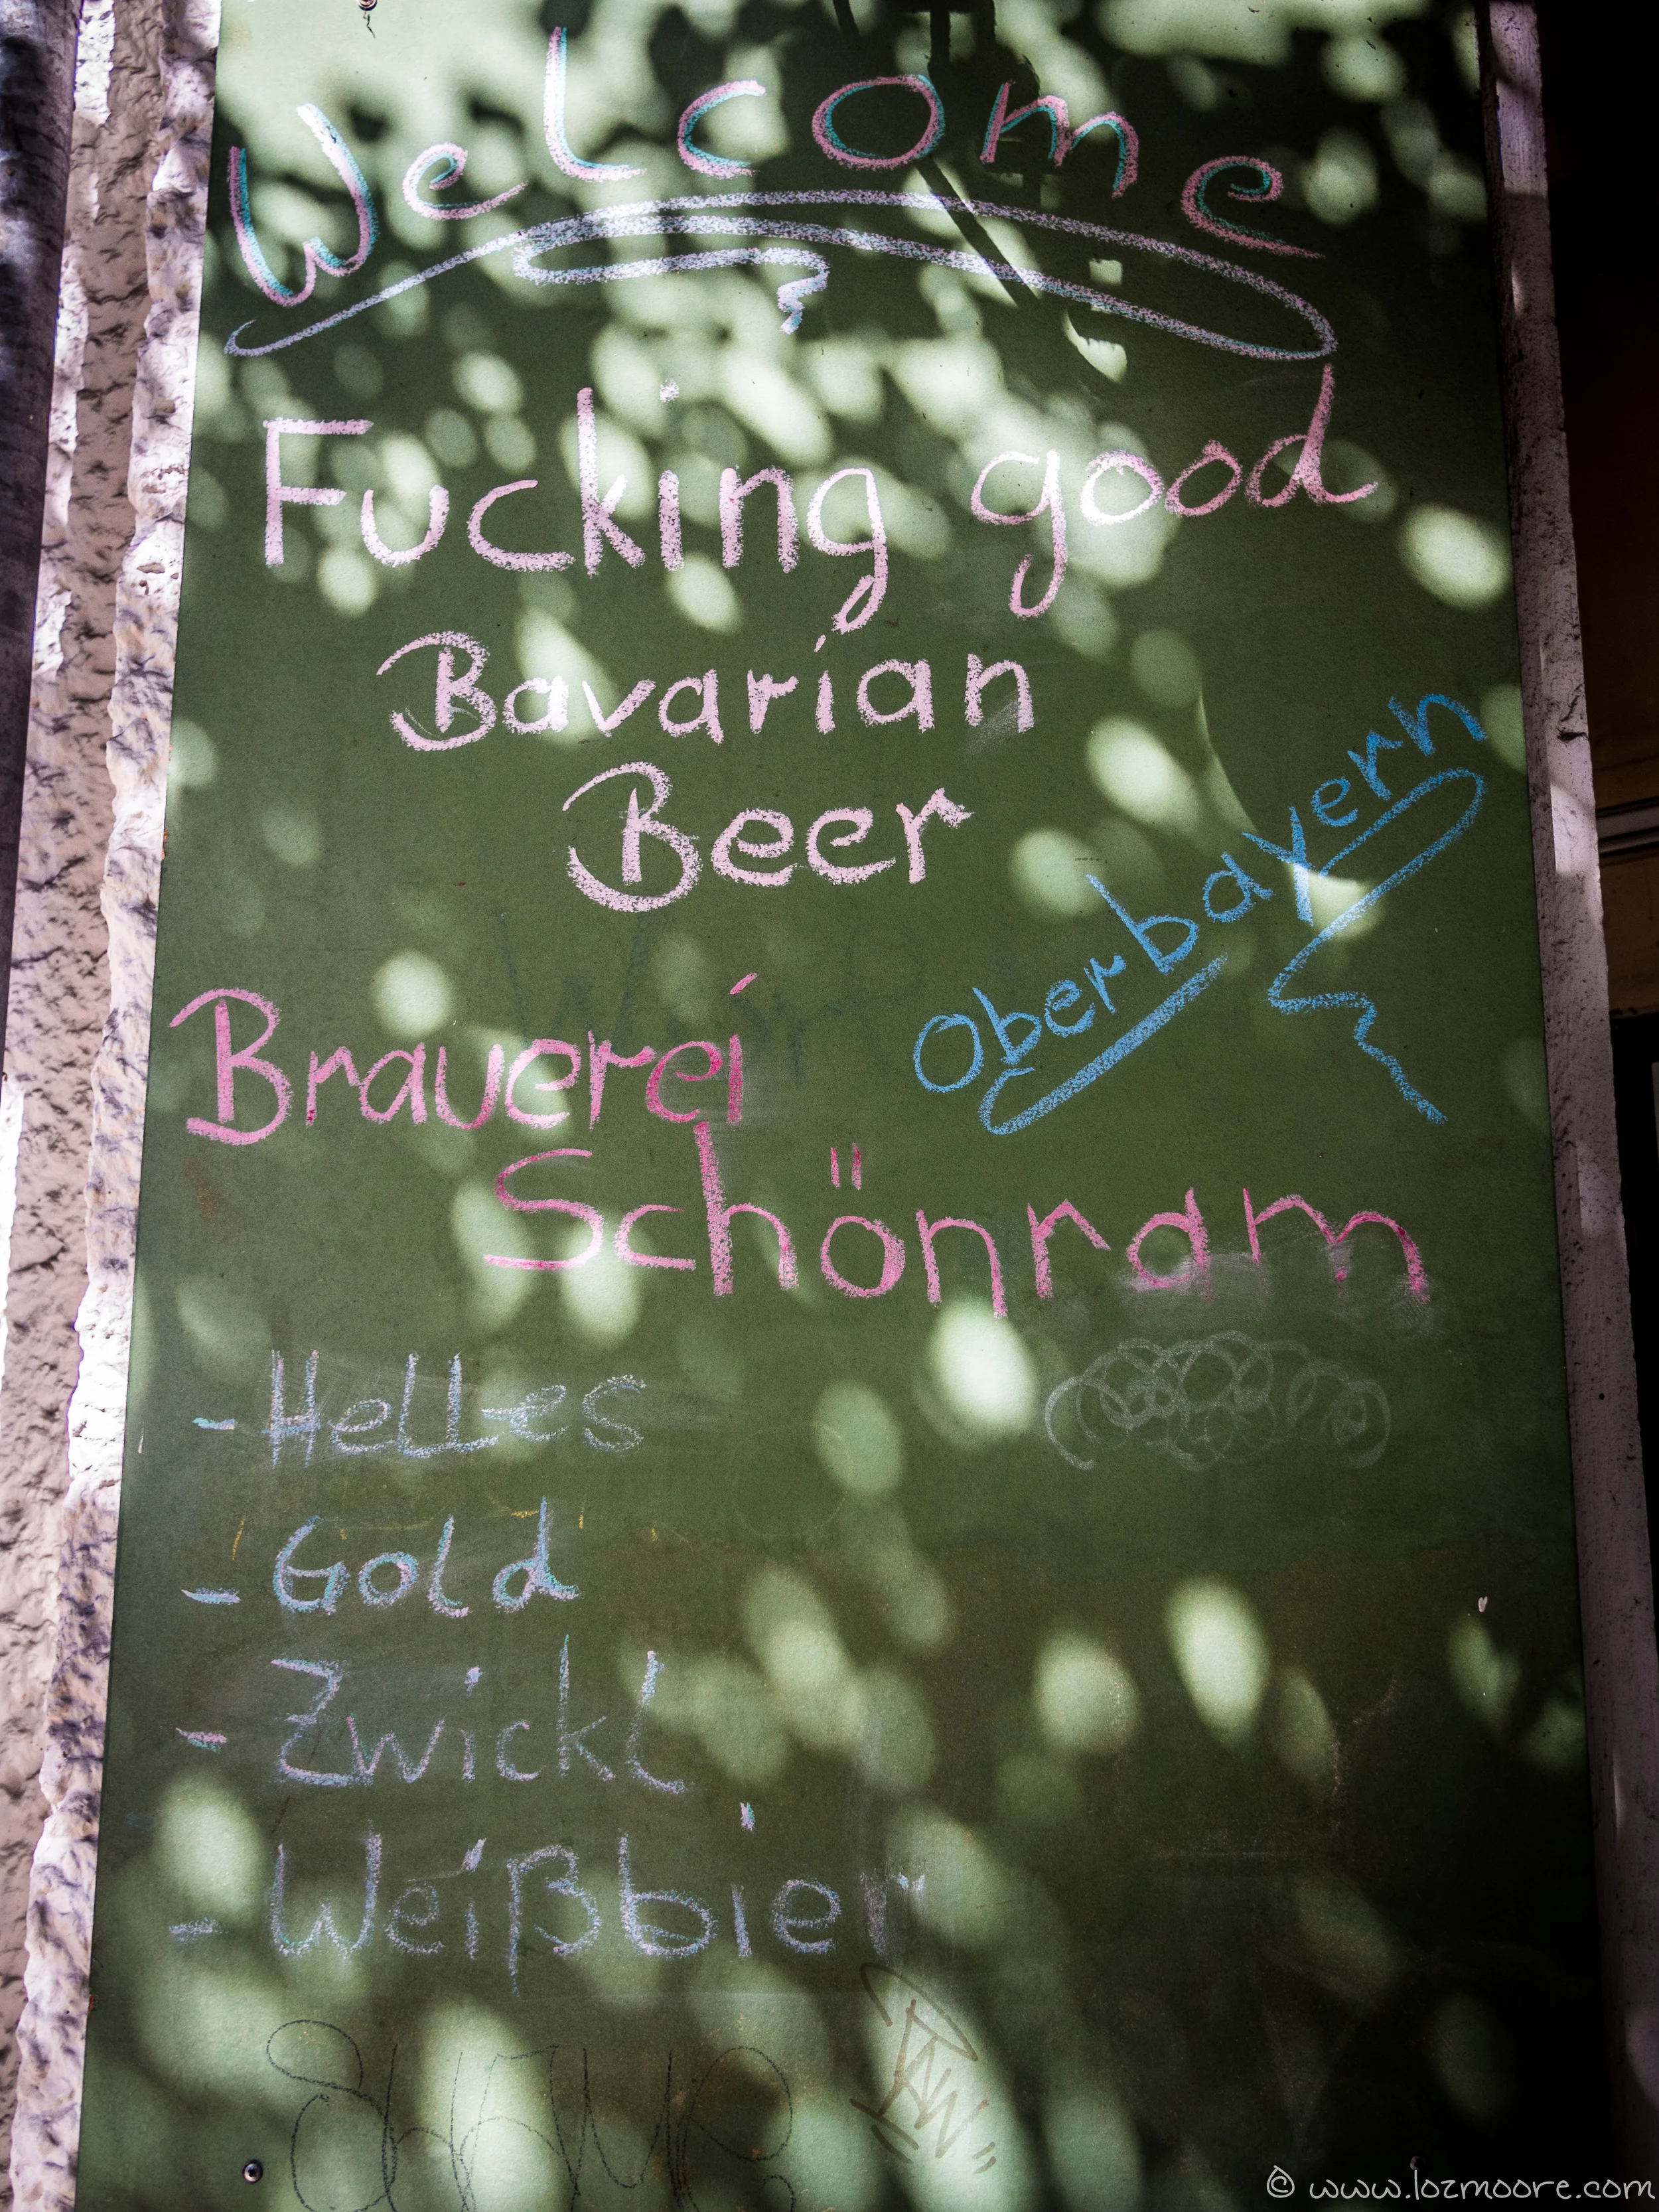 Welcome
Fucking good
Bavarian
Beer
Oberbayern
Brauerei
Schönram
- Helles
- Gold
- Zwickl
- Weißbier
© www.lozmoore.com